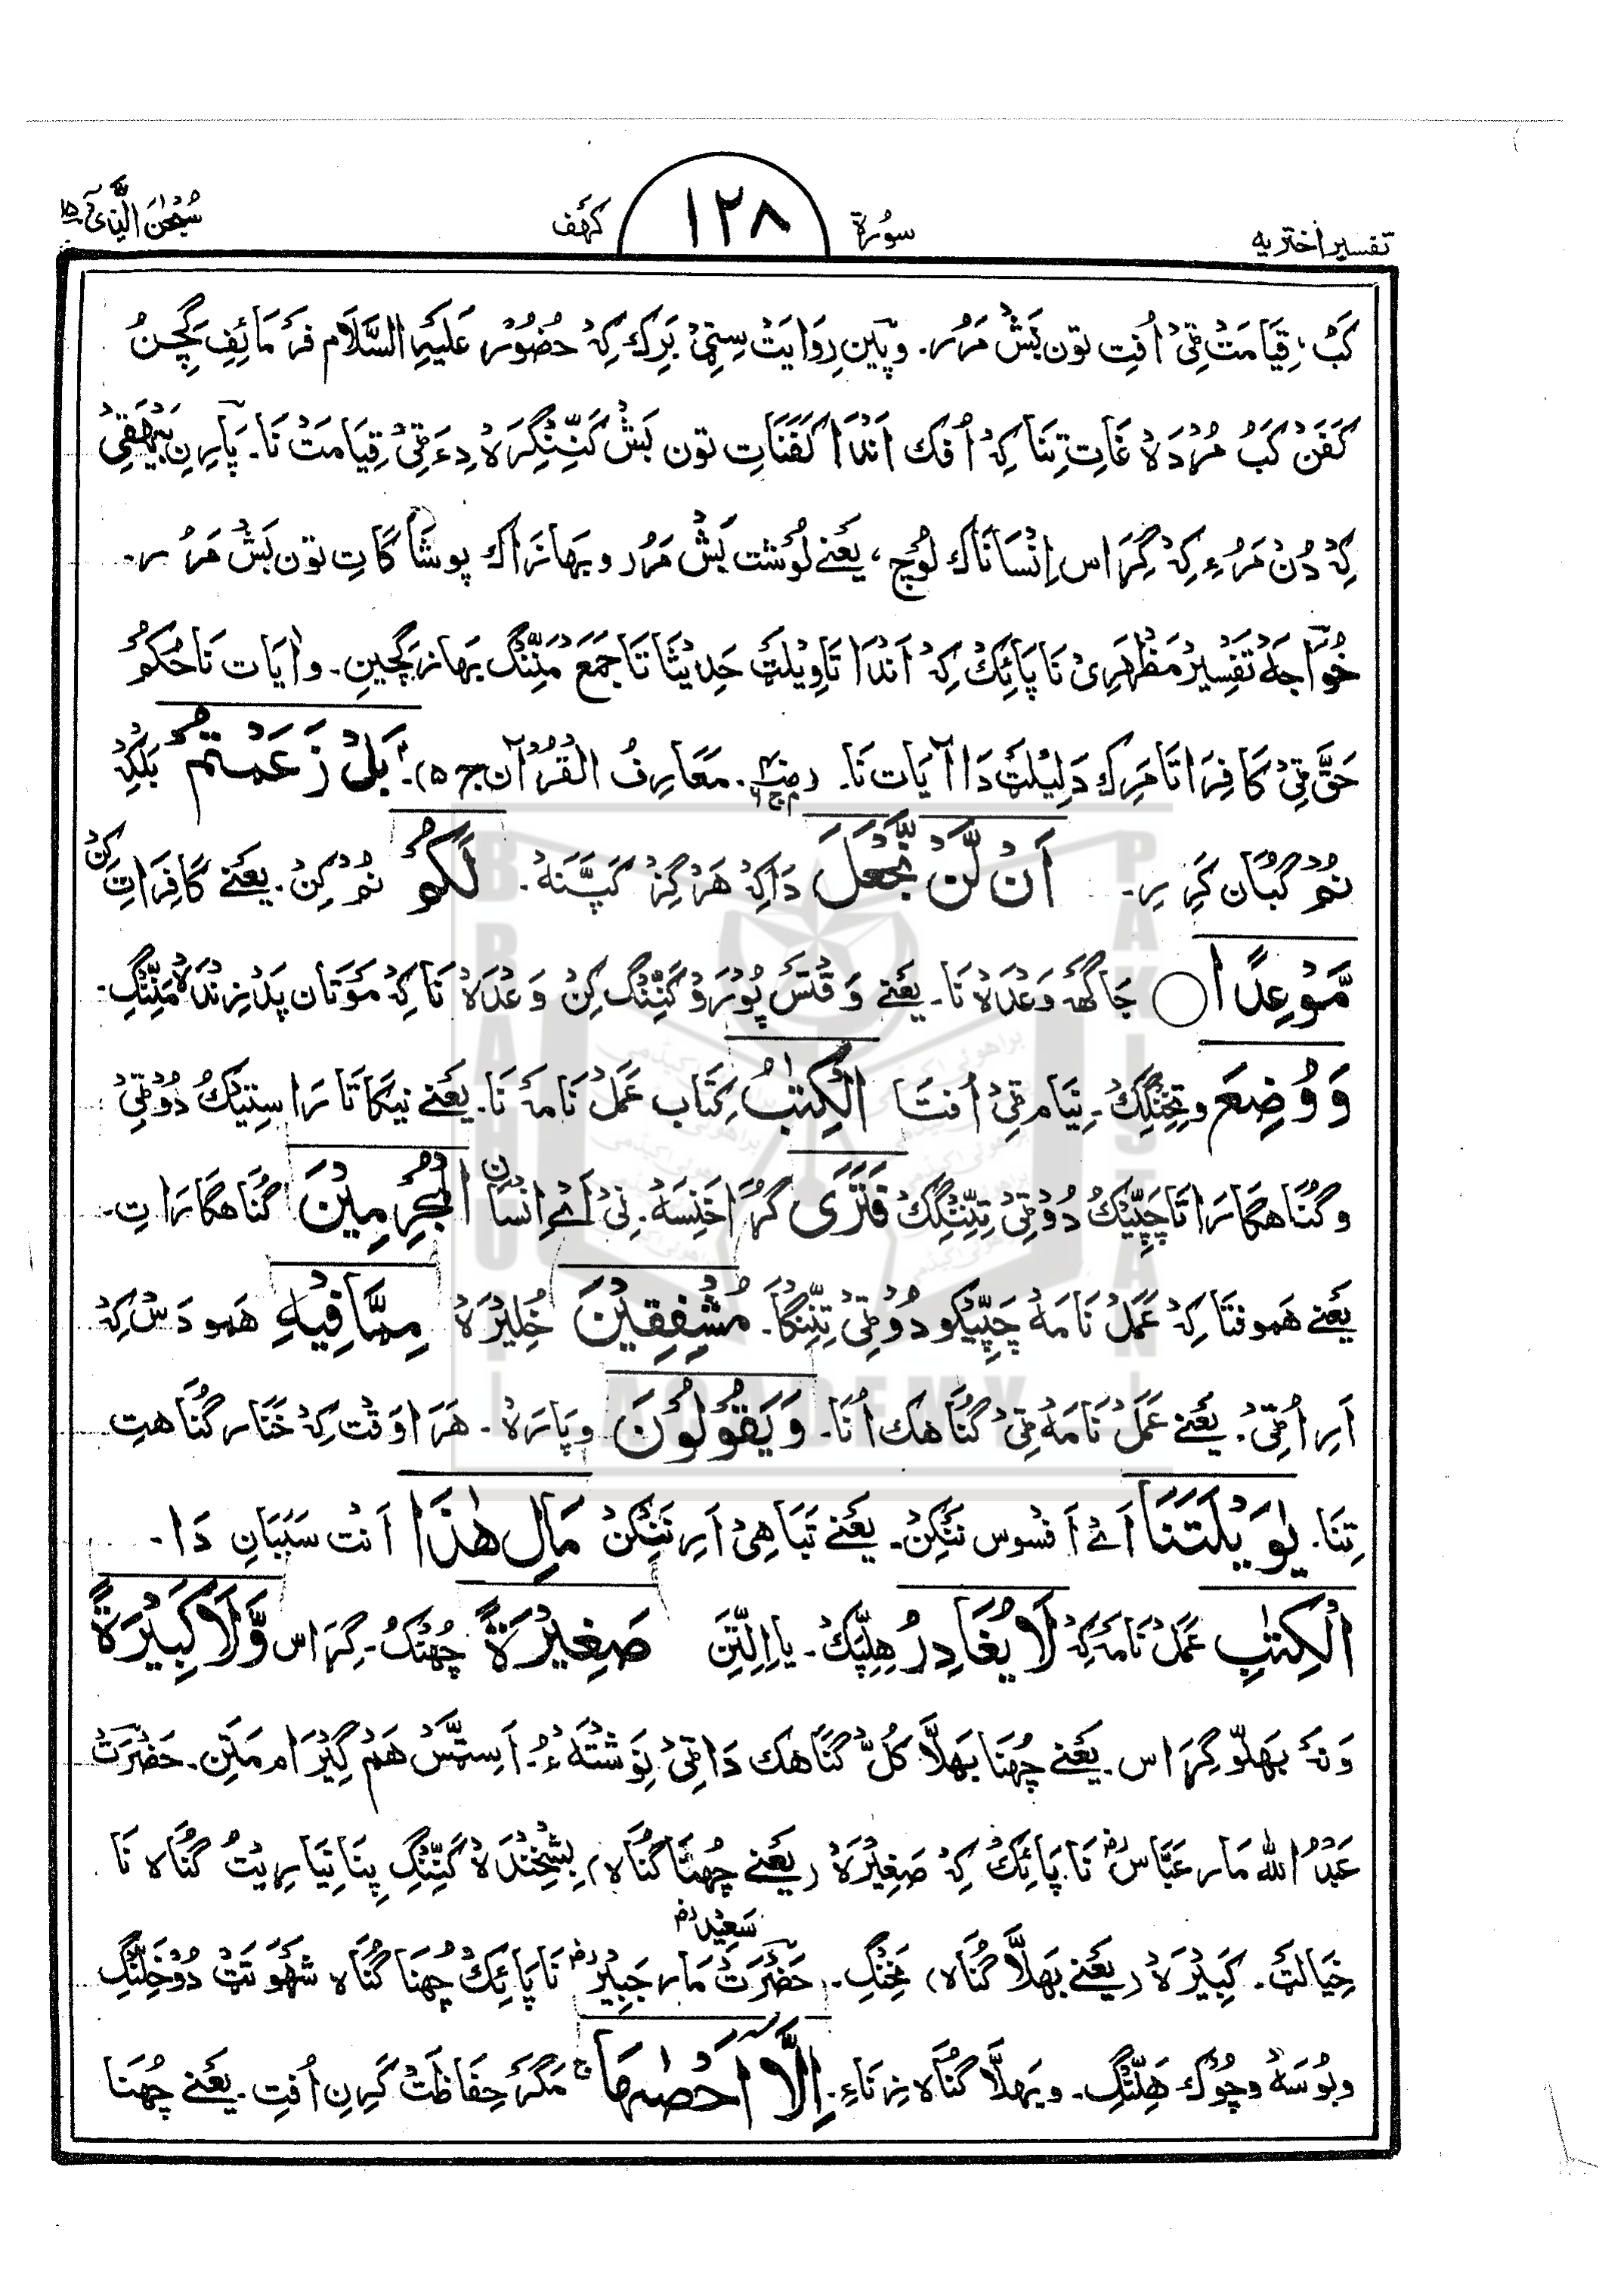 تفسیر اختریه سُورة ۱۲۸ کهَف سُبْحٰنَ الَّذِیْٓ ۱۵
کَبْ، قِیَامَتْ ٹِیْ اُفِت تون بَشْ مَرُر. وپین رِوَایَتْ سِیْٹِیْ بَرِک کِہْ حضُوْر عَلَیْہِ السَّلَام فرَمَائِفِ گِچنُ
کَفَنْ کَبُ مُرْدَہْ غَاتِ تِنَا کِہْ اُفک اَنْدَا کَفَنَاتِ تون بَشْ کَنِّنْگِرَہْ دِءَ ٹِیْ قِیَامَتْ نَا۔ پَارِنِ بَیْہَقِیْ
کِہْ دُنْ مَرُءِ کِہْ گِرَاس اِنْسَانَاک لُوچ، یَعْنے لُوشت بَشْ مَرُر و بَھازَاک پوشَاکَاتِ تون بَشْ مَرُر۔
خُوَاجَہْ تَفْسِیْر مَظْہَرِیْ نَا پَائِکْ کِہْ اَنْدَا تَاوِیْلَتْ حَدِیْثَا تَا جَمَعَ مَنِّنْگ بَھاز گِچِینِ۔ و اٰیَات نَا حُکمْ
حَقَّ ٹِیْ کَافِرَاتَا مَرِک دَلِیْلَتْ دَا آیَات نَا۔ مَعَارِفُ الْقُرْآن ج ۵)۔ بَلْ زَعَمْتُمْ بَلکِہْ
نُمْ گُبَان کَرِرِ۔ اَنْ لَّنْ نَّجْعَلَ دَاکِہْ هَرْگِزْ کَپَّنَہْ۔ لَکُمْ نُمْ کِنْ۔ یَعْنے کَافِرَاتِ کِنْ
مَّوْعِدًا ○ جَاگَہْ وَعْدَہْ نَا۔ یَعْنے وَقْتَسْ پُوْرَوْ کَنِّنْگ کِنْ وَعْدَہْ نَا کِہْ مَوْتَان پَدْ زِنْدَہْ مَنِّنْگ۔
وَوُضِعَ و تِخِنْگِکْ۔ نِیَام ٹِیْ اُفتَا الْکِتٰبُ کِتَاب عَمَلْ نَامَہْ نَا۔ یَعْنے نیکَاتَا رَاسْتِیْکُ دُوْٹِیْ
و گُنَاهگارَاتَا چَپِّیْکُ دُوْٹِیْ تِنِّنْگِکْ فَتَرَی گُرَا خَنِسَہْ۔ نِیْ اَےْ اِنْسَان الْمُجْرِمِیْنَ گُنَاهگارَاتِ۔
یَعْنے هَموفتَا کِہْ عَمَلْ نَامَہْ چَپِّیْکو دُوْٹِیْ تِنِّنْگا۔ مُشْفِقِیْنَ خُلِیْرَہْ مِمَّافِیْهِ هَمودَسْ کِہْ
اَرِ اُٹِیْ۔ یَعْنے عَمَلْ نَامَہْ ٹِیْ گُنَاهک اُنَا۔ وَیَقُوْلُوْنَ وپَارَہْ۔ هَرَ اوَقْت کِہْ خَنَار گُنَاهتِ
تِنَا۔ یٰوَیْلَتَنَا اَےْ اَفسُوس نَنکِنْ۔ یَعْنے تَبَاهِیْ اَرِ نَنکِنْ مَالِ هٰذَا اَنْت سَبَبَان دَا۔
الْکِتٰبِ عَمَلْ نَامَہْ کِہْ لَا یُغَادِرُ هِلِپَّکْ۔ یا اِلِتِن صَغِیْرَةً چُھنْکُ۔ گِرَاس وَّلَا کَبِیْرَةً
وَنَہْ بَھلّو گِرَاس۔ یَعْنے چُھنَا بَھلَّا کُلْ گُنَاهک دَاٹِیْ نِوِشْتَہْءُ۔ اَسِتَّسْ هَمْ گِیْرَام مَتِن۔ حَضْرَتْ
عَبْدُ اللّٰہ مَار عَبَّاسْؓ نَا پَائِکْ کِہْ صَغِیْرَہْ (یَعْنے چُھنَا گُنَاہ) بِشْخَنْدَہْ کَنِّنْگ بِنَا نِیَارِیْتُ گُنَاہ نَا
خِیَالَتْ۔ کَبِیْرَہْ (یَعْنے بَھلَّا گُنَاہ) مَخِنْگ۔ حَضْرَتْ سَعِیْدؓ مَار جَبِیْرؓ نَا پَائِکْ چُھنَا گُنَاہ شَهْوَتَتْ دُوْخِلِّنْگ
و بُوسَہْ و چُوک هَلِّنْگ۔ و بَھلَّا گُنَاہ زِنَاءِ۔ اِلَّا اَحْصٰهَا ج مَگَرْ حِفَاظَتْ کَرِنِ اُفتِ۔ یَعْنے چُھنَا
BRAHUI ACADEMY PAKISTAN